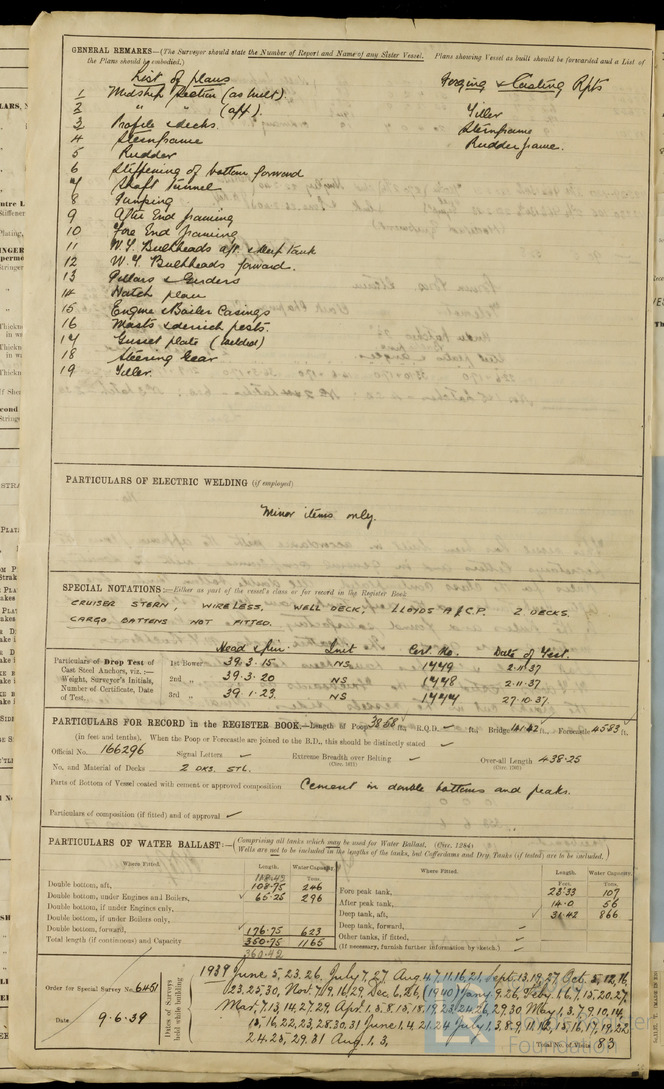 GENERAL REMARKS—(The Surveyor should state the Number of Report and Name of any Sister Vessel. Plans showing Vessel as built should be forwarded and a List of
the Plans should be embodied.)
List of plans
Forging & Casting Rpts
1 Midship Section (as built)
2 " " (aft).
Tiller
3 Profile & decks.
Sternframe
4 Sternframe
Rudderframe.
5 Rudder
6 Stiffening of bottom forward
7 Shaft Tunnel
8 Pumping
9 After End framing
10 Fore End framing
11 W.T. Bulkheads aft & deep tank
12 W.T. Bulkheads forward.
13 Pillars & Girders
14 Hatch plan
15 Engine & Boiler Casings
16 Masts & derrick posts.
17 Gusset plate (welded)
18 Steering Gear
19 Tiller.
PARTICULARS OF ELECTRIC WELDING (if employed)
Minor items only.
SPECIAL NOTATIONS:—Either as part of the vessel's class or for record in the Register Book
CRUISER STERN, WIRELESS, WELL DECK, LLOYDS A & C.P. 2 DECKS.
CARGO BATTENS NOT FITTED.
Head & pin. Init Cert. No. Date of Test.
Particulars of Drop Test of Cast Steel Anchors, viz.:— Weights, Surveyor's Initials, Number of Certificate, Date of Test.
1st Bower 39.3.15 NS 1449 2.11.37
2nd „ 39.3.20 NS 1448 2.11.37
3rd „ 39.1.23. NS 1444 27.10.37.
PARTICULARS FOR RECORD in the REGISTER BOOK.—Length of Poop 38.68 ft., R.Q.D. ✓ ft., Bridge 141.42 ft., Forecastle 45.83 ft.
(in feet and tenths). When the Poop or Forecastle are joined to the B.D., this should be distinctly stated ✓
Official No. 166296 Signal Letters ✓ Extreme Breadth over Belting ✓ Over-all Length 438.25
No. and Material of Decks 2 DKS. STL.
Parts of Bottom of Vessel coated with cement or approved composition Cement in double bottoms and peaks.
Particulars of composition (if fitted) and of approval ✓
PARTICULARS OF WATER BALLAST:—(Comprising all tanks which may be used for Water Ballast. (Circ. 1284)
Wells are not to be included in the lengths of the tanks, but Cofferdams and Dry Tanks (if tested) are to be included.)
Where Fitted. Length. Water Capacity. Where Fitted. Length. Water Capacity.
Tons. Feet. Tons.
Double bottom, aft, 108.75 246 Fore peak tank, 22.33 107
Double bottom, under Engines and Boilers, 65.25 296 After peak tank, 14.0 56
Double bottom, if under Engines only, Deep tank, aft, 31.42 866
Double bottom, if under Boilers only, Deep tank, forward, ✓
Double bottom, forward, 176.75 623 Other tanks, if fitted, ✓
Total length (if continuous) and Capacity 350.75 1165 (If necessary, furnish further information by sketch.) ✓
360.42
Order for Special Survey No. 6451
Date 9.6.39
Dates of Surveys held while building
1939 June 5, 23. 26, July 7, 27 Aug 4, 7, 11, 16, 21, Sept. 13, 19, 27 Oct. 5, 12, 16,
23, 25, 30, Nov. 7, 9, 16, 29, Dec 6, 26, (1940) Jany. 9. 26, Feby. 1, 6, 7, 15, 20, 27,
Mar. 7, 13, 14, 27, 29, Apr. 1, 3, 8, 15, 18, 19, 23, 24, 26, 29, 30 May 1, 3, 7, 9, 10, 14,
15, 16, 22, 23, 28, 30, 31 June 1, 4, 21, 24 July 1, 3, 8, 9, 11, 12, 15, 16, 17, 19, 22
24, 25, 29, 31 Aug. 1, 3,
Total No. of Visits 83
Foundation